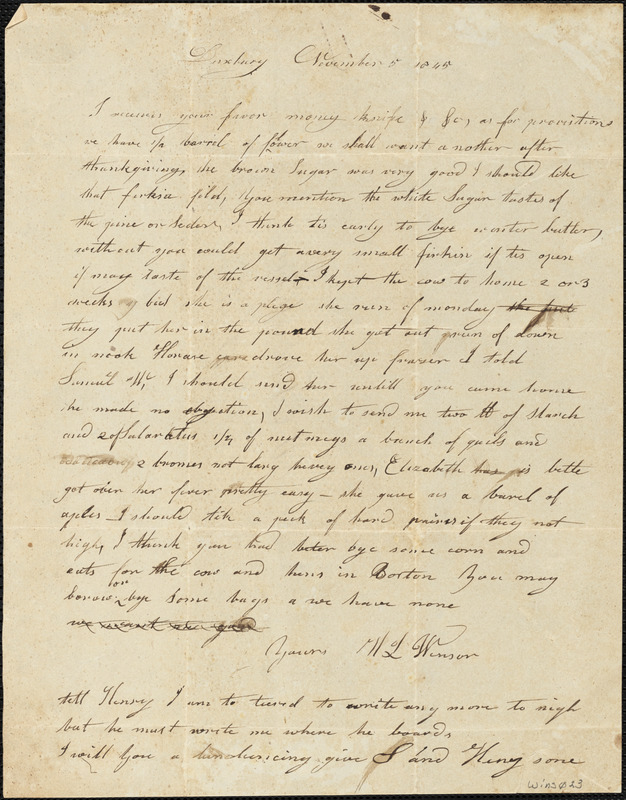 Duxbury November 5 1845
I receive your favor money knife & &c, as for provisions
we have 1/2 barrel of flower we shall want a nother after
thanksgiving, the brown Sugar was very good I should like
that firkin fild, You mention the white Sugar tastes of
the pine or Seder, I think tis early to bye winter butter,
without you could get avery small firkin if tis open
it may taste of the vessel - I kept the cow to home 2 or 3
weeks but she is a plege she run of monday
they put her in the pound she got out run of down
in nook Horace drove her up frazer I told
Samuel I should send her untill you came home
he made no objection, I wish to send me two lb of Starch
and 2 of Salaratus 1/4 of nutmegs a bunch of quils and
2 bromes not lang hevey ones, Elizabeth is bette
got over her fever pretty easy - she gave us a barel of
apples I should lik a peck of hard pairs if they not
high, I think you had beter bye some corn and
oats for the cow and hens in Boston You may
borow or bye Some bags a we have none
Yours W L Winsor
tell Henry I am to tierd to write any more to nigh
but he must write me where he boards
I will you a give S and Heny sone
Wins023